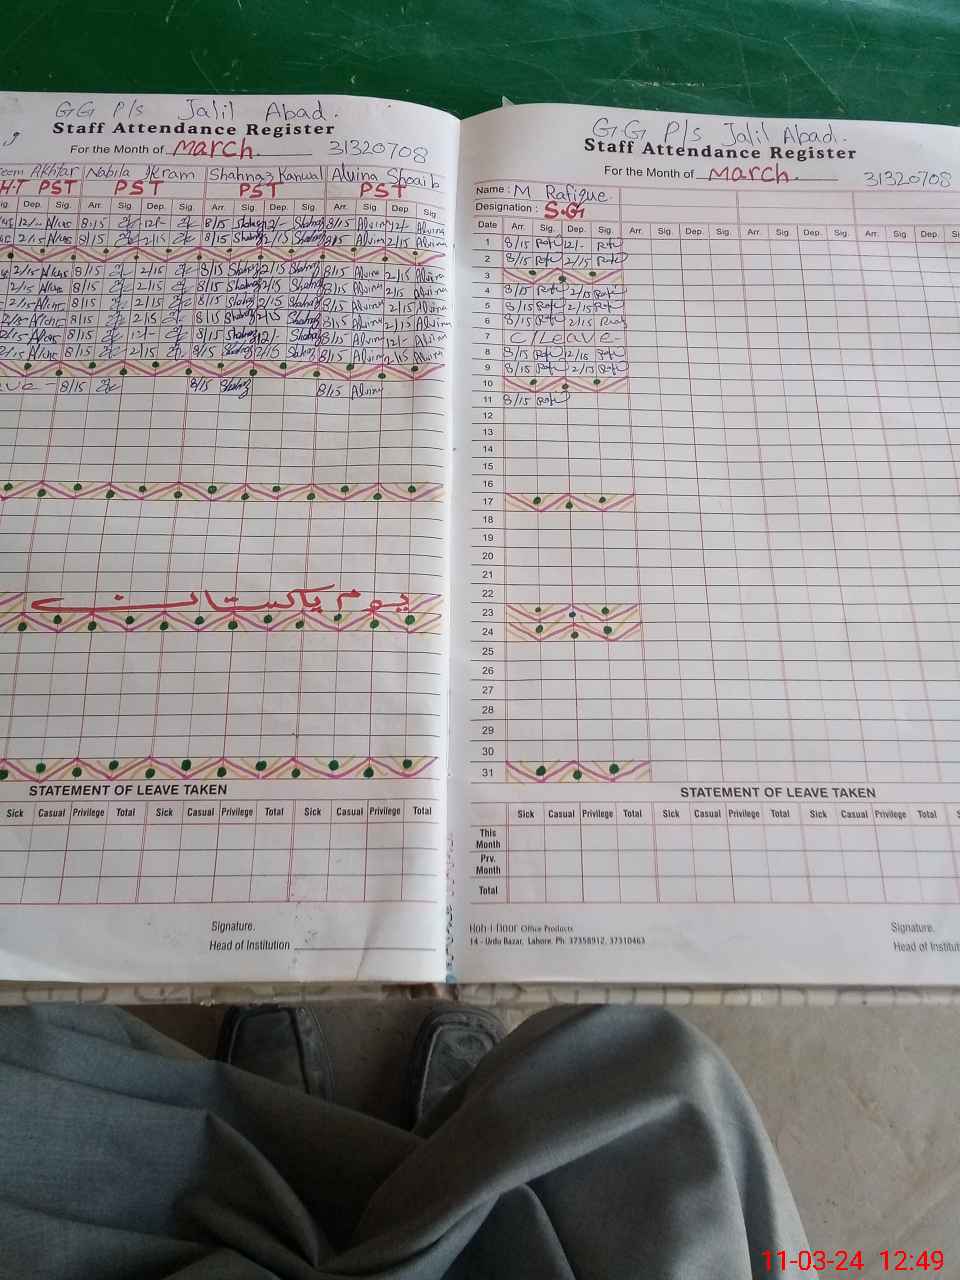 GG P/s Jalil Abad.
Staff Attendance Register
For the Month of March. 31320708
Akhtar Nabila Ikram Shahnaz Kanwal Alvina Shoaib
H.T PST PST PST PST
Dep. Sig. Arr. Sig. Dep. Sig. Arr. Sig. Dep. Sig. Arr. Sig. Dep. Sig.
12/- 8/15 12/- 8/15 Shahnaz 12/- Shahnaz 8/15 Alvina 12/- Alvina
2/15 8/15 2/15 8/15 Shahnaz 2/15 Shahnaz 8/15 Alvina 2/15 Alvina
2/15 8/15 2/15 8/15 Shahnaz 2/15 Shahnaz 8/15 Alvina 2/15 Alvina
2/15 8/15 2/15 8/15 Shahnaz 2/15 Shahnaz 8/15 Alvina 2/15 Alvina
2/15 8/15 2/15 8/15 Shahnaz 2/15 Shahnaz 8/15 Alvina 2/15 Alvina
2/15 8/15 2/15 8/15 Shahnaz 2/15 Shahnaz 8/15 Alvina 2/15 Alvina
2/15 8/15 12/- 8/15 Shahnaz 12/- Shahnaz 8/15 Alvina 12/- Alvina
2/15 8/15 2/15 8/15 Shahnaz 2/15 Shahnaz 8/15 Alvina 2/15 Alvina
8/15 8/15 Shahnaz 8/15 Alvina
یوم پاکستان
STATEMENT OF LEAVE TAKEN
Sick Casual Privilege Total Sick Casual Privilege Total Sick Casual Privilege Total
Signature.
Head of Institution
GG P/s Jalil Abad.
Staff Attendance Register
For the Month of March. 31320708
Name : M Rafique
Designation : S.G
Date Arr. Sig. Dep. Sig. Arr. Sig. Dep. Sig. Arr. Sig. Dep. Sig. Arr. Sig. Dep.
1 8/15 12/-
2 8/15 2/15
3
4 8/15 2/15
5 8/15 2/15
6 8/15 2/15
7 C/Leave-
8 8/15 12/15
9 8/15 2/15
10
11 8/15
12
13
14
15
16
17
18
19
20
21
22
23
24
25
26
27
28
29
30
31
STATEMENT OF LEAVE TAKEN
Sick Casual Privilege Total Sick Casual Privilege Total Sick Casual Privilege Total
This Month
Prv. Month
Total
Office Products
14 - Urdu Bazar, Lahore. Ph: 37358912, 37310463
Signature.
Head of
11-03-24 12:49